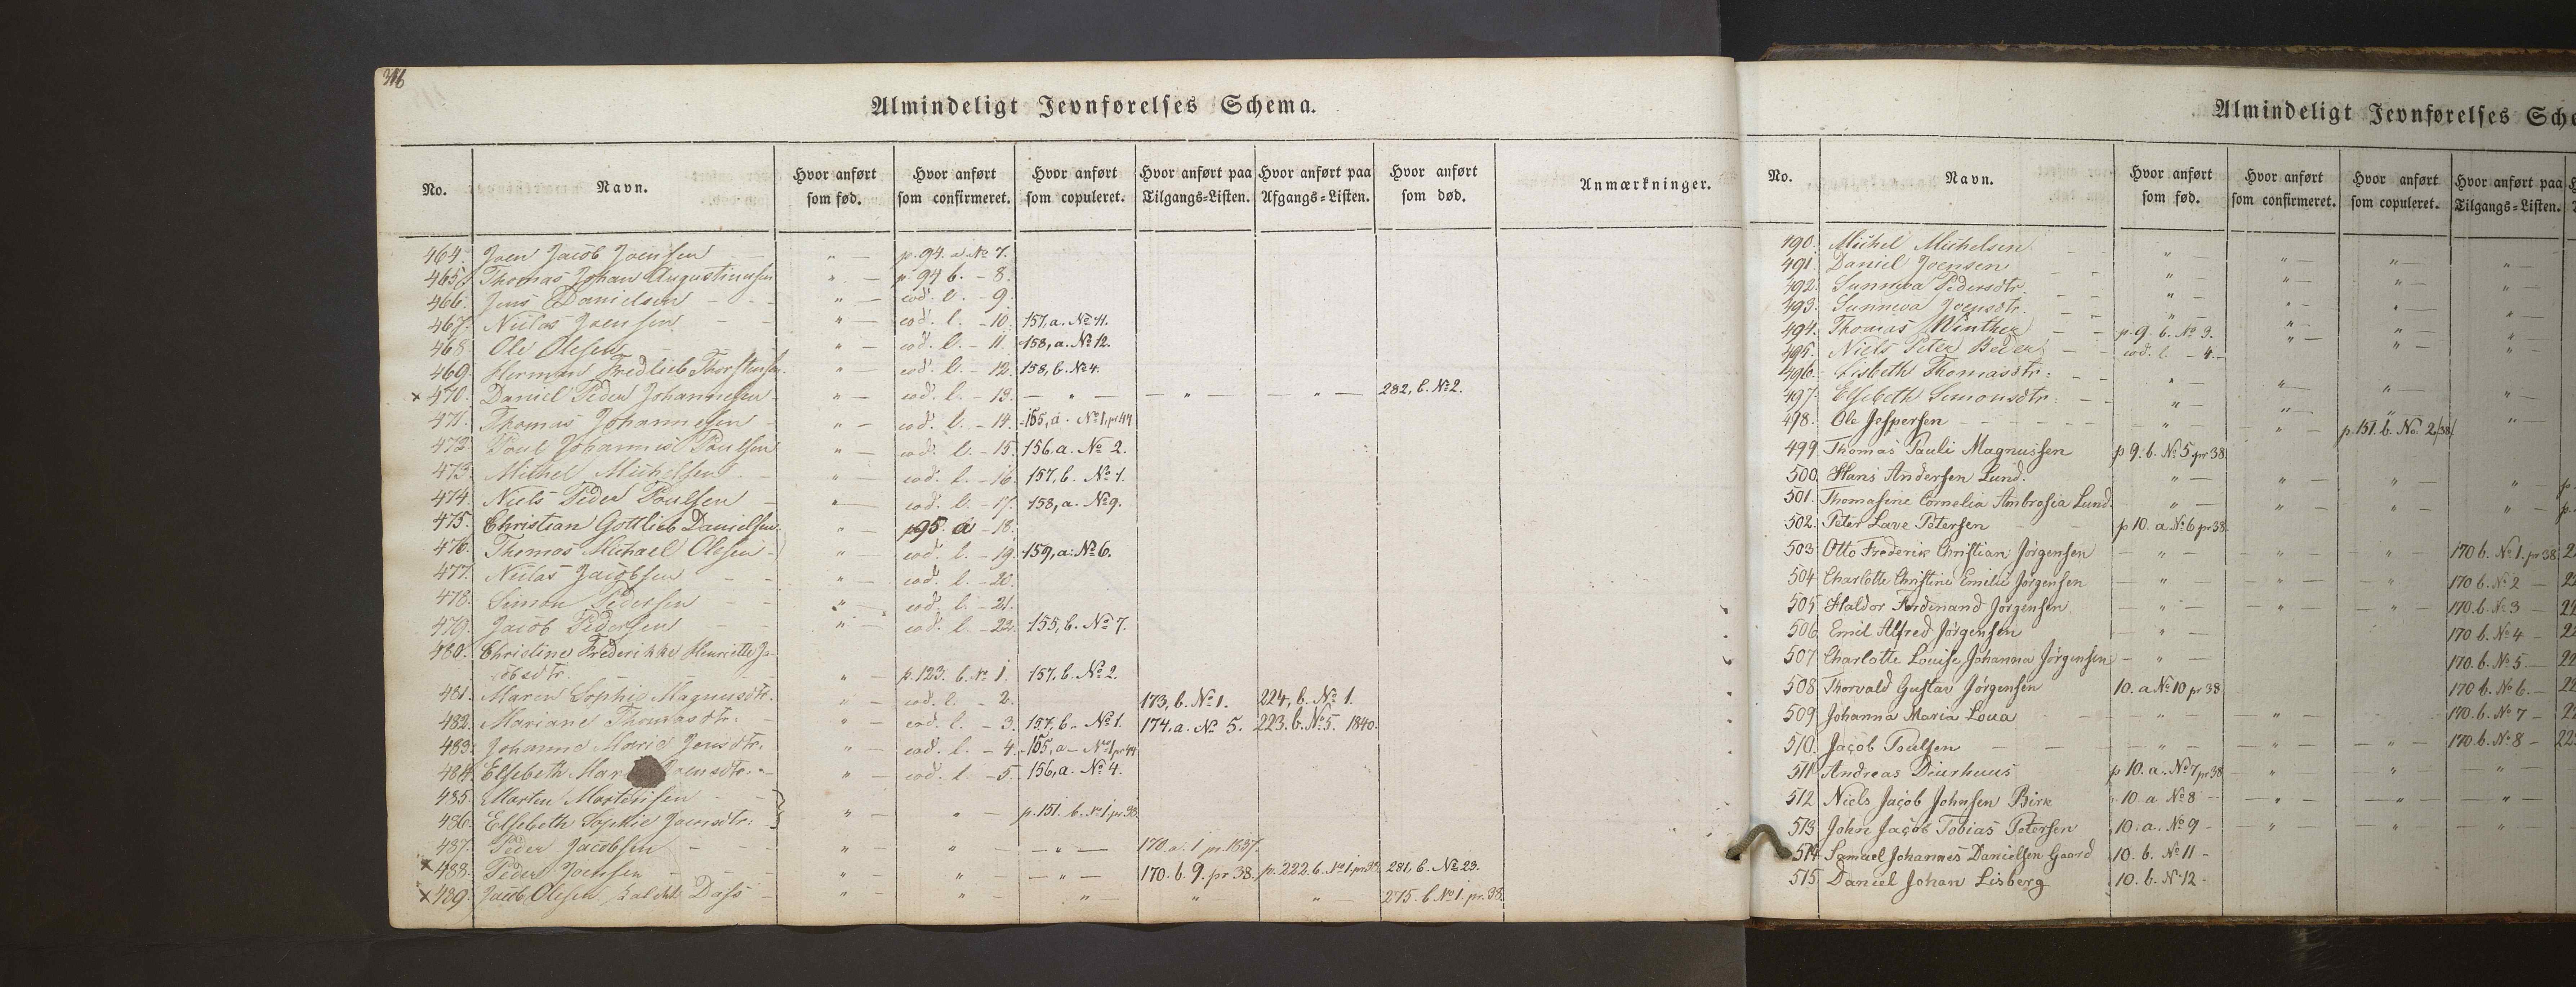 316
Almindeligt Jevnførelses Schema.
No. Navn. Hvor anført som fød. Hvor anført som confirmeret. Hvor anført som copuleret. Hvor anført paa Tilgangs-Listen. Hvor anført paa Afgangs-Listen. Hvor anført som død. Anmærkninger.
464. Joen Jacob Joensen " — p. 94. a № 7.
465. Thomas Johan Augustinusen " — p 94 b. - 8.
466. Jens Danielsen " — eod. l. - 9.
467. Niclas Joensen " — eod. l. - 10. 157, a. № 11.
468. Ole Olesen " — eod. l. - 11. 158, a. № 12.
469. Herman Fredlieb Thorstensen. " — eod. l. - 12. 158, b. № 4.
× 470. Daniel Peder Johannesen " — eod. l. - 13. — " — — " — — " — 282, b. № 2.
471. Thomas Johannesen " — eod. l. - 14. 155, a. № 1, pr 44
472. Poul Johannes Poulsen " — eod. l. - 15. 156. a. № 2.
473. Michel Michelsen " — eod. l. - 16. 157, b. № 1.
474. Niels Peder Poulsen " — eod. l. - 17. 158, a. № 9.
475. Christian Gottlieb Danielsen. " — p 95 a - 18.
476. Thomas Michael Olesen " — eod. l. - 19. 159, a: № 6.
477. Niclas Jacobsen " — eod. l. - 20.
478. Simon Pedersen " — eod. l. - 21.
479. Jacob Pedersen " — eod. l. - 22. 155, b. № 7.
480. Christine Frederikke Henriette Ja-
cobsdtr. " — p. 123. b. № 1. 157, b. № 2.
481. Maren Sophie Magnusdtr. " — eod. l. - 2. 173, b. № 1. 224, b. № 1.
482. Mariane Thomasdtr. " — eod. l. - 3. 157, b. № 1. 174. a. № 5. 223. b. № 5. 1840.
483. Johanne Marie Jensdtr. " — eod. l. - 4. 155, a - № 1 pr 44
484. Elsebeth Mar Joensdtr. " — eod. l. - 5. 156, a. № 4.
485. Morten Mortensen
486. Elsebeth Sophie Joensdtr. " — " — p. 151. b. № 1. pr 38.
487. Peder Jacobsen " — " — — " — 170. a. 1 pr. 1837.
× 488. Peder Joensen " — " — — " — 170. b. 9. pr 38. p. 222. b. № 1. pr 38 281, b. № 23.
× 489. Jacob Olesen kaldet Dass " — " — " — " " — 275. b № 1. pr. 38.
Almindeligt Jevnførelses Sche
No. Navn. Hvor anført som fød. Hvor anført som confirmeret. Hvor anført som copuleret. Hvor anført paa Tilgangs-Listen.
490. Michel Michelsen " — " — " — " —
491. Daniel Joensen " — " — " — " —
492. Sunneva Pedersdtr. " — " — " — " —
493. Sunneva Joensdtr. " — " — " — " —
494. Thomas Winther p. 9. b. № 3. " — " — " —
495. Niels Peter Beder eod. l. - 4. -
496. Lisbeth Thomasdtr: " — " — " — " —
497. Elsebeth Simonsdtr. " — " — "
498. Ole Jespersen " — " — p. 151. b. № 2/38 " —
499 Thomas Pauli Magnussen p 9. b. № 5 pr 38
500. Hans Andersen Lund. " — " — " — " — p.
501. Thomasine Cornelia Ambrosia Lund. " — " — " — " — p.
502. Peter Lave Petersen p 10. a № 6 pr 38.
503 Otto Frederik Christian Jørgensen — " — — " — — " — 170 b. № 1. pr 38 2
504 Charlotte Christine Emilie Jørgensen — " — — " — — " — 170 b. № 2 — 22
505 Haldor Ferdinand Jørgensen — " — — " — — " — 170. b. № 3 — 22
506 Emil Alfred Jørgensen — " — 170 b. № 4 — 22
507 Charlotte Louise Johanna Jørgensen — " — 170. b. № 5 — 22
508 Thorvald Gustav Jørgensen 10. a № 10 pr 38 170 b. № 6. — 22
509 Johanna Maria Loua — " — — " — 170. b. № 7 — 2
510. Jacob Poulsen — " — — " — — " — 170 b. № 8 — 22
511 Andreas Djurhuus p 10. a. № 7 pr 38 — " — " — — " —
512 Niels Jacob Johnsen Birk 10 a № 8 — — " — — " — — " —
513 John Jacob Tobias Petersen 10. a. № 9 - — " — — " — — " —
514 Samuel Johannes Danielsen Gaard 10. b. № 11 -
515 Daniel Johan Lisberg 10. b. № 12 -